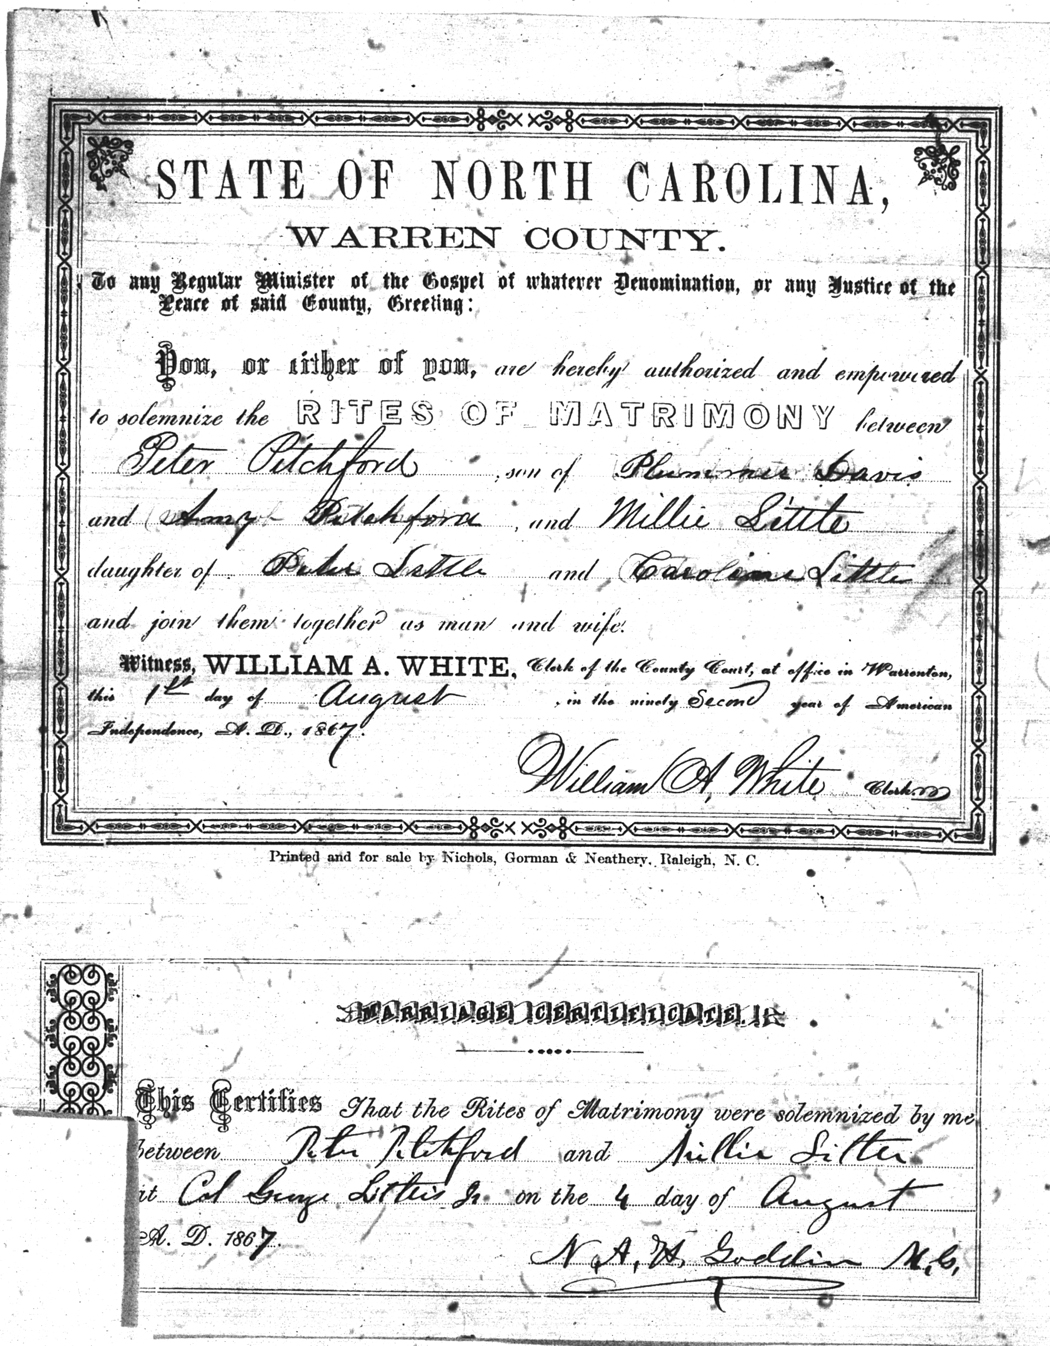 STATE OF NORTH CAROLINA,
WARREN COUNTY.
To any Regular Minister of the Gospel of whatever Denomination, or any Justice of the
Peace of said County, Greeting:
You, or either of you, are hereby authorized and empowered
to solemnize the RITES OF MATRIMONY between
Peter Pitchford , son of Plummer Davis
and Amy Pitchford , and Millie Little
daughter of Peter Little and Caroline Little
and join them together as man and wife.
Witness, WILLIAM A. WHITE, Clerk of the County Court, at office in Warrenton,
this 1st day of August , in the ninety Second year of American
Independence, A. D., 1867.
William A. White Clerk.
Printed and for sale by Nichols, Gorman & Neathery, Raleigh, N. C.
MARRIAGE CERTIFICATE.
This Certifies That the Rites of Matrimony were solemnized by me
between Peter Pitchford and Millie Little
at Col George Littles Jr on the 4 day of August
A. D. 1867.
N. A. H. Goddin M. G.